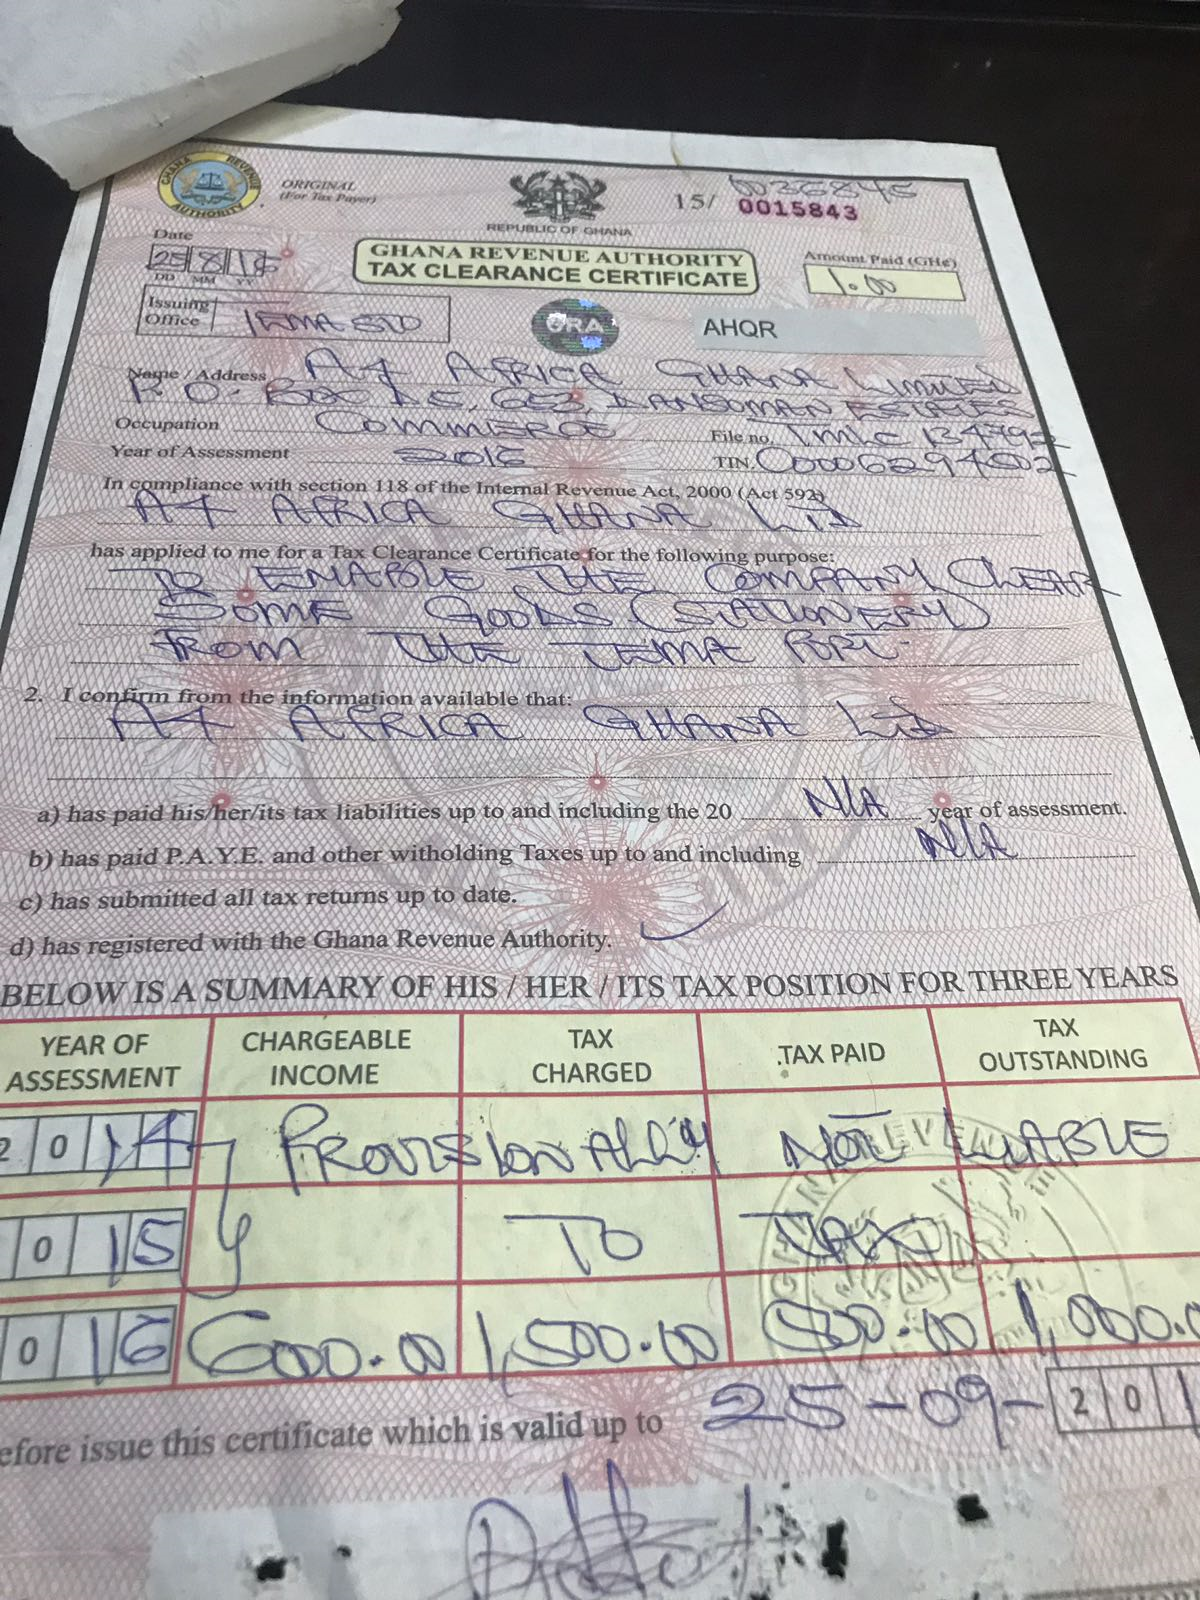 GHANA REVENUE AUTHORITY
ORIGINAL
(For Tax Payer)
REPUBLIC OF GHANA
15/ 0036845
0015843
Date
25 8 16
DD MM YY
GHANA REVENUE AUTHORITY
TAX CLEARANCE CERTIFICATE
Amount Paid (GH¢)
1.00
Issuing Office TEMA STO
GRA
AHQR
Name / Address A4 AFRICA GHANA LIMITED
P. O. BOX DANSOMAN ESTATES
Occupation COMMERCE File no.
Year of Assessment 2016 TIN.
In compliance with section 118 of the Internal Revenue Act, 2000 (Act 592)
A4 AFRICA GHANA LTD
has applied to me for a Tax Clearance Certificate for the following purpose:
TO ENABLE THE COMPANY CLEAR
SOME GOODS (STATIONERY)
FROM THE TEMA PORT.
2. I confirm from the information available that:
A4 AFRICA GHANA LTD
a) has paid his/her/its tax liabilities up to and including the 20 N/A year of assessment.
b) has paid P.A.Y.E. and other witholding Taxes up to and including N/A
c) has submitted all tax returns up to date.
d) has registered with the Ghana Revenue Authority. ✓
BELOW IS A SUMMARY OF HIS / HER / ITS TAX POSITION FOR THREE YEARS
YEAR OF ASSESSMENT CHARGEABLE INCOME TAX CHARGED TAX PAID TAX OUTSTANDING
2014 PROVISIONALLY NOT LIABLE
015 TO TAX
016 6000.00 1,500.00 500.00 1,000.0
efore issue this certificate which is valid up to 25-09-201